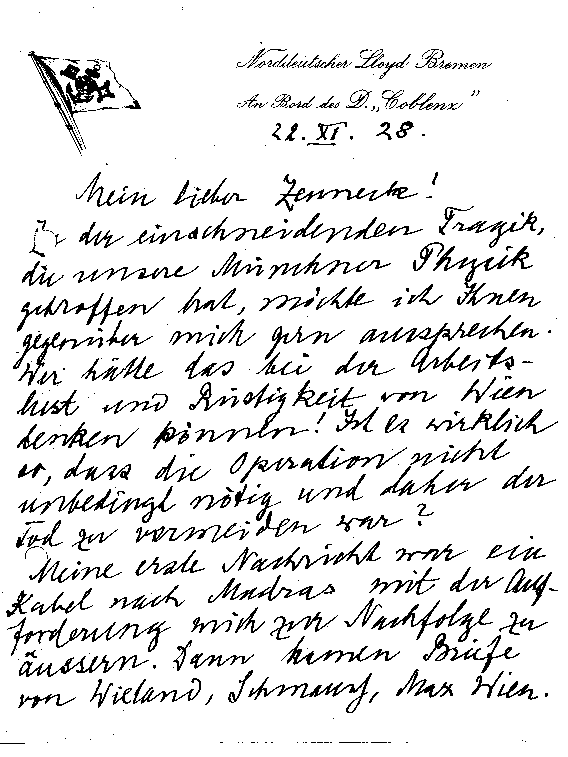 Norddeutscher Lloyd Bremen
An Bord des D. „Coblenz”
22. XI. 28.
Mein lieber Zenneck!
In der einschneidenden Tragik,
die unsere Münchner Physik
getroffen hat, möchte ich Ihnen
gegenüber mich gern aussprechen.
Wer hätte das bei der Arbeits-
lust und Rüstigkeit von Wien
denken können! Ist es wirklich
so, dass die Operation nicht
unbedingt nötig und daher der
Tod zu vermeiden war?
Meine erste Nachricht war ein
Kabel nach Madras mit der Auf-
forderung mich zur Nachfolge zu
äussern. Dann kamen Briefe
von Wieland, Schmauss, Max Wien.